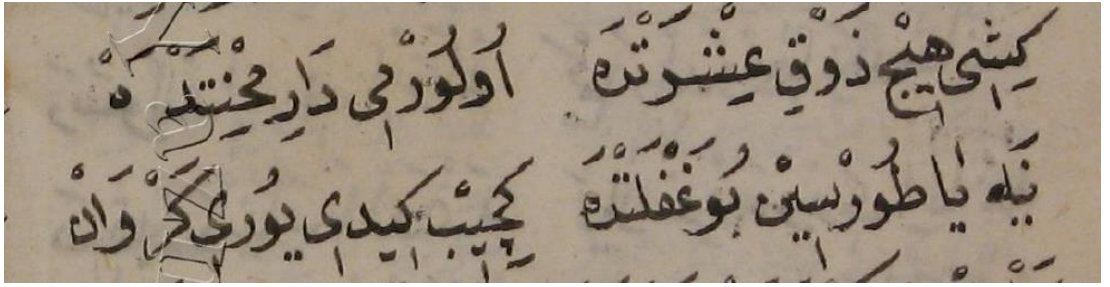 كِشِى هِيچْ ذَوْقِ عِشْرَتْدَه اُولُورْمِى دَارِ مِحْنَتْدَه
نَيْلَه يَاطُورْسِينْ بُو غَفْلَتْدَه كَچِيبْ كِيدِى يُورِى كَرْوَانْ